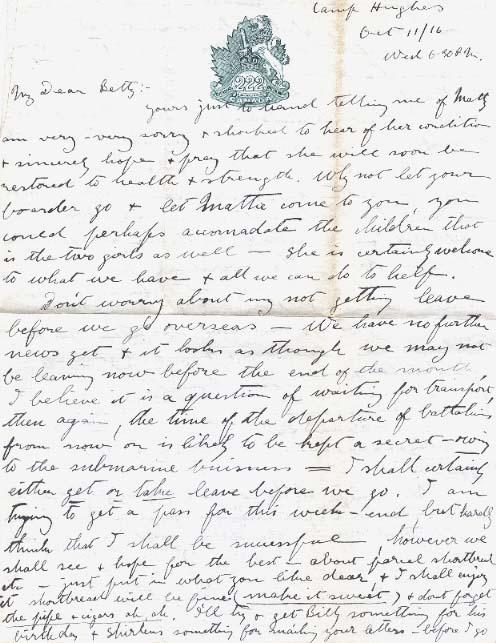 Camp Hughes
Oct 11/16
Wed 6-30 P.M.
222
My Dear Betty:-
yours just to hand telling me of Matty
am very - very sorry & shocked to hear of her condition
& sincerely hope & pray that she will soon be
restored to health & strength. Why not let your
boarder go & let Mattie come to you, you
could perhaps accomadate the children that
is the two girls as well - She is certainly welcome
to what we have & all we can do to help.
Don't worry about my not getting leave
before we go overseas - We have no further
news yet & it looks as though we may not
be leaving now before the end of the month,
I believe it is a question of waiting for transport,
then again, the time of the departure of battalions
from now on is likely to be kept a secret - owing
to the submarine buisness = I shall certainly
either get or take leave before we go. I am
trying to get a pass for this week-end but hardly
think that I shall be successful, however we
shall see & hope for the best - about parcel shortbread
etc - just put in what you like dear, & I shall enjoy
it shortbread will be fine (make it sweet) & dont forget
the pipe & cigars ah ah I'll try & get Billy something for his
birthday & something for mailing your letters - before I go